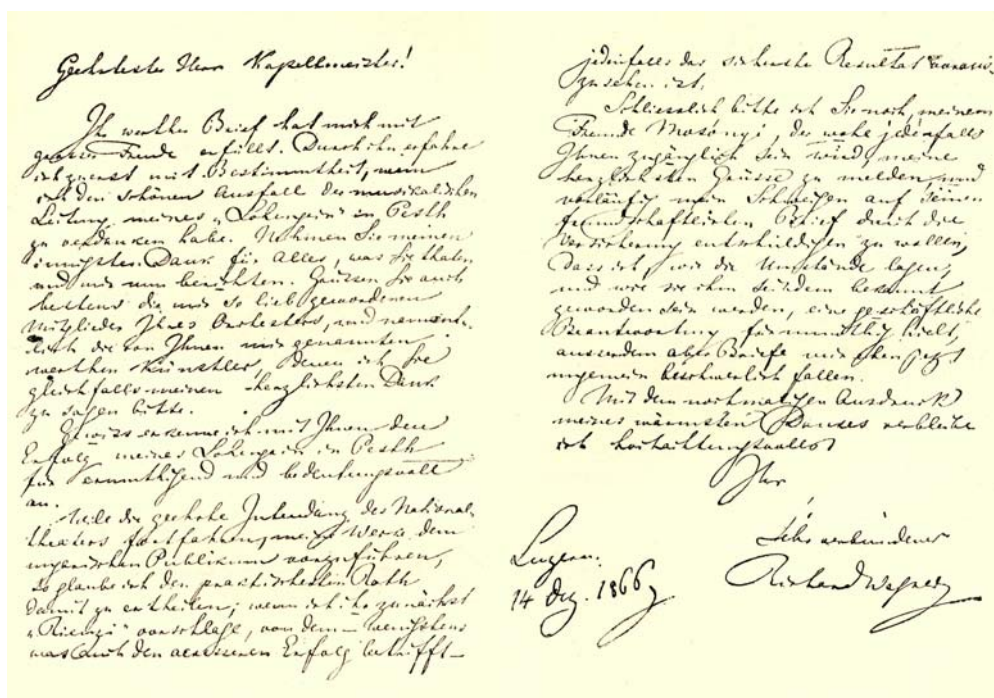 Geehrtester Herr Kapellmeister!
Ihr werther Brief hat mich mit
grosser Freude erfüllt. Durch ihn erfahre
ich zuerst mit Bestimmtheit, wem
ich den schönen Ausfall der musikalischen
Leitung meines „Lohengrin" in Pesth
zu verdanken habe. Nehmen Sie meinen
innigsten Dank für alles, was Sie thaten
und mir nun berichten. Grüssen Sie auch
bestens die mir so lieb gewordenen
Mitglieder Ihres Orchesters, und nament-
lich die von Ihnen mir genannten
werthen Künstler, denen ich Sie
gleichfalls meinen herzlichsten Dank
zu sagen bitte.
Gewiss erkenne ich mit Ihnen den
Erfolg meines Lohengrin in Pesth
für ermuthigend und bedeutungsvoll
an.
Wille die geehrte Intendanz des National-
theaters fortfahren, meine Werke dem
ungarischen Publikum vorzuführen,
so glaube ich den practischesten Rath
damit zu ertheilen, wenn ich ihr zunächst
„Rienzi" vorschlage, von dem – wenigstens
was auch den äusseren Erfolg betrifft –
jedenfalls das sicherste Resultat vorauszu-
zusehen ist.
Schliesslich bitte ich Sie noch, meinem
Freunde Mosonyi, der wohl jedenfalls
Ihnen zugänglich sein wird, meine
herzlichsten Grüsse zu melden, und
vorläufig mein Schweigen auf seinen
freundschaftlichen Brief durch die
Versicherung entschuldigen zu wollen,
dass ich, wie die Umstände lagen,
und wie sie ihm seitdem bekannt
geworden sein werden, eine geschäftliche
Beantwortung für unnöthig hielt,
ausserdem aber Briefe mir eben jetzt
ungemein beschwerlich fallen.
Mit dem nochmaligen Ausdruck
meines wärmsten Dankes verbleibe
ich hochachtungsvollst
Ihr
sehr verbundener
Richard Wagner
Luzern.
14 Dez. 1866